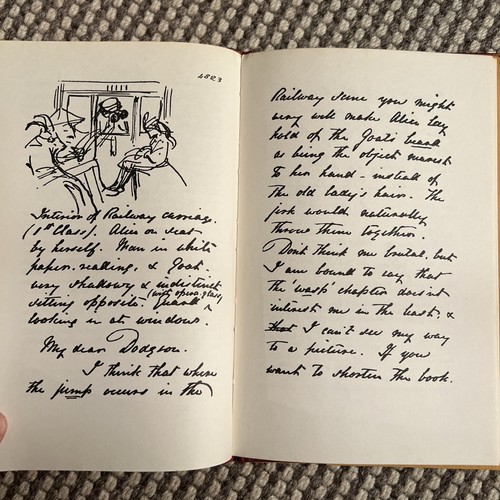 4823
Interior of Railway carriage.
(1st Class). Alice on seat
by herself. Man in white
paper, reading, & Goat
very shadowy & indistinct
sitting opposite. Guard (with opera glass)
looking in at window.
My dear Dodgson.
I think that when
the jump occurs in the
Railway scene you might
very well make Alice lay
hold of the Goat's beard
as being the object nearest
to her hand - instead of
the old lady's hair. The
jerk would naturally
throw them together.
Don't think me brutal, but
I am bound to say that
the 'wasp' chapter doesn't
interest me in the least, &
that I can't see my way
to a picture. If you
want to shorten the book.